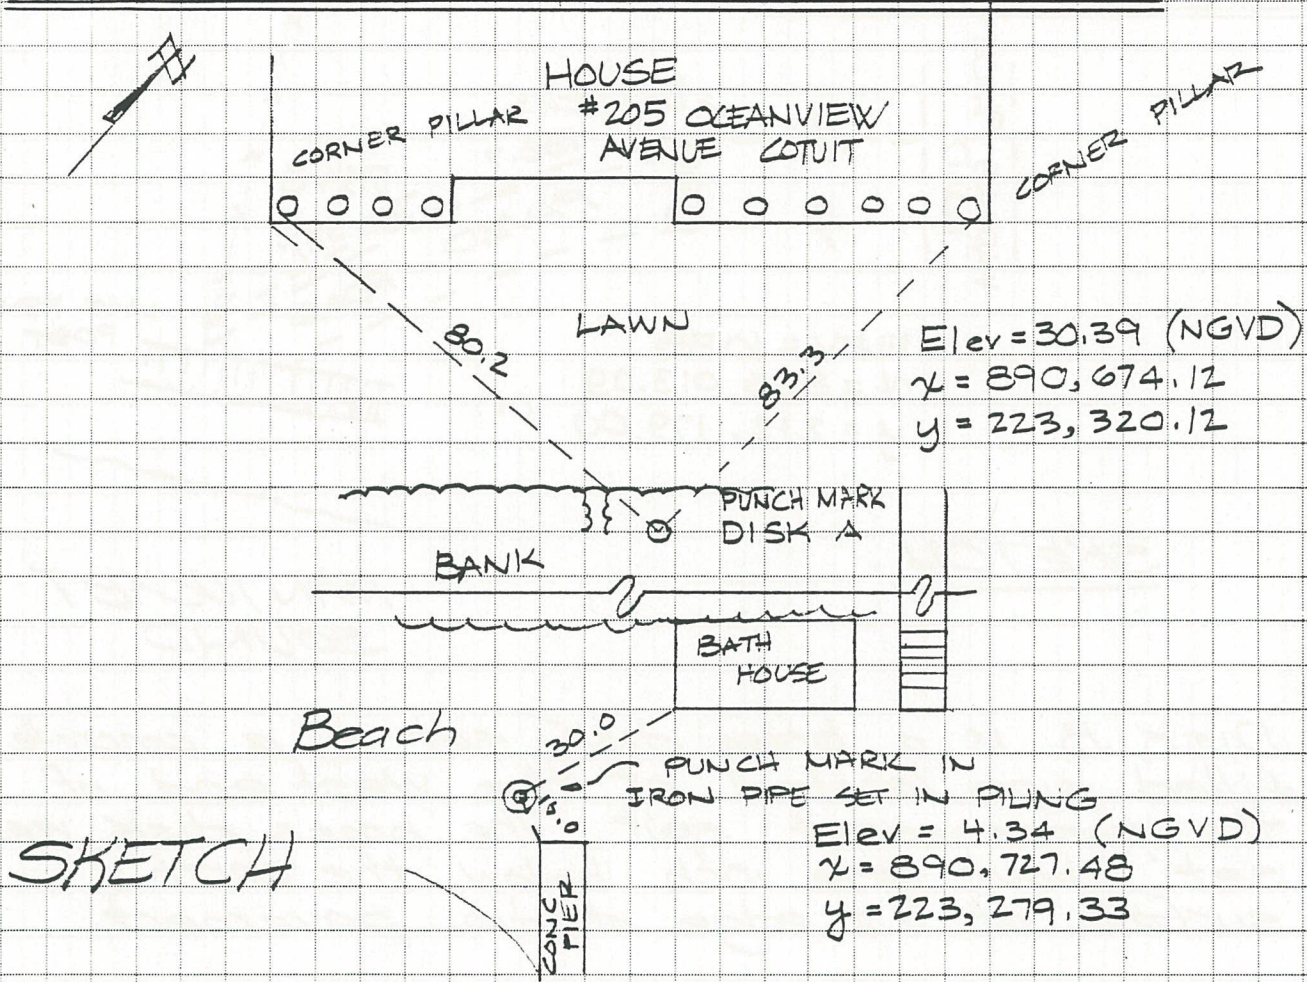 HOUSE
#205 OCEANVIEW
AVENUE COTUIT
CORNER PILLAR
CORNER PILLAR
LAWN
80.2
83.3
Elev = 30.39 (NGVD)
x = 890,674.12
y = 223,320.12
PUNCH MARK
DISK A
BANK
BATH
HOUSE
Beach
30.0
PUNCH MARK IN
IRON PIPE SET IN PILING
Elev = 4.34 (NGVD)
x = 890,727.48
y = 223,279.33
SKETCH
CONC
PIER